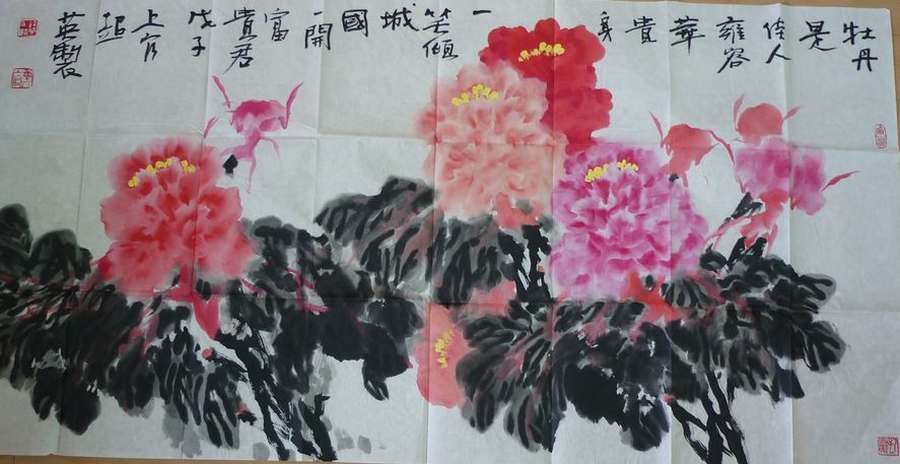 牡丹
是
佳人
雍容
華
貴
身
一
笑傾
城
國
一開
富
貴君
戊子
上官
超
英製